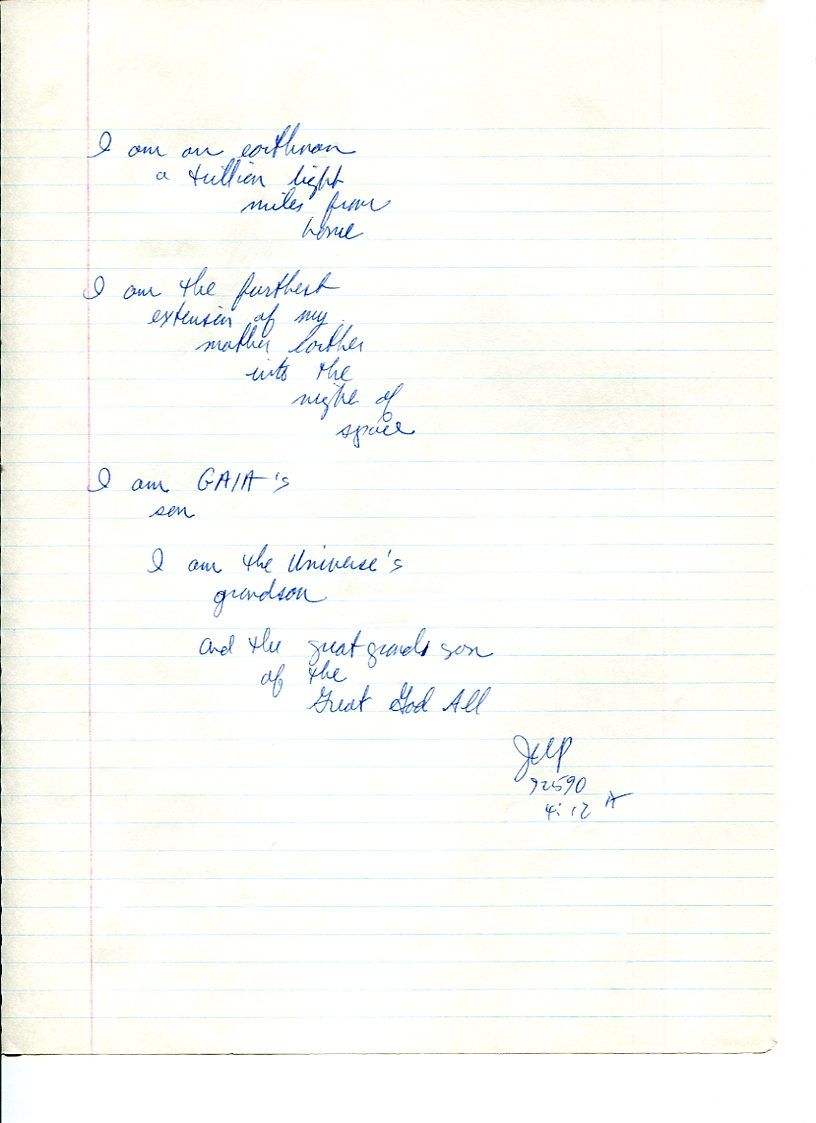 I am an earthman
a trillion light
miles from
home
I am the furthest
extension of my
mother
into the
night of
space
I am GAIA's
son
I am the Universe's
grandson
And the great grands son
of the
Great God All
92590
4:12 A